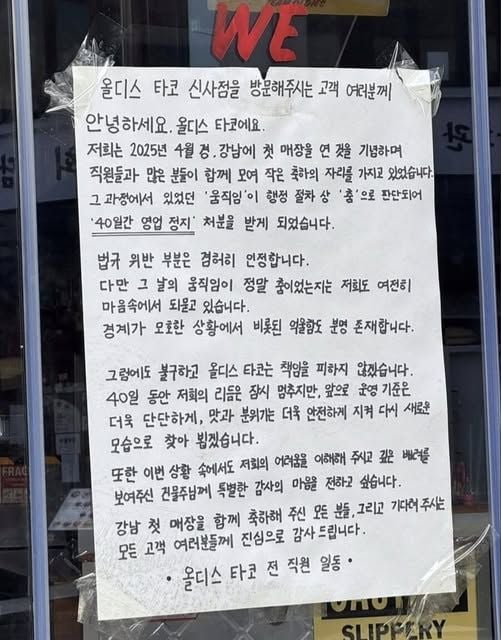 WE
올디스 타코 신사점을 방문해주시는 고객 여러분께
안녕하세요. 올디스 타코예요.
저희는 2025년 4월 경, 강남에 첫 매장을 연 것을 기념하며
직원들과 많은 분들이 함께 모여 작은 축하의 자리를 가지고 있었습니다.
그 과정에서 있었던 '움직임'이 행정 절차 상 '춤'으로 판단되어
'40일간 영업 정지' 처분을 받게 되었습니다.
법규 위반 부분은 겸허히 인정합니다.
다만 그 날의 움직임이 정말 춤이었는지는 저희도 여전히
마음속에서 되묻고 있습니다.
경계가 모호한 상황에서 비롯된 억울함도 분명 존재합니다.
그럼에도 불구하고 올디스 타코는 책임을 피하지 않겠습니다.
40일 동안 저희의 리듬은 잠시 멈추지만, 앞으로 운영 기준은
더욱 단단하게, 맛과 분위기는 더욱 안전하게 지켜 다시 새로운
모습으로 찾아 뵙겠습니다.
또한 이번 상황 속에서도 저희의 어려움을 이해해 주시고 깊은 배려를
보여주신 건물주님께 특별한 감사의 마음을 전하고 싶습니다.
강남 첫 매장을 함께 축하해 주신 모든 분들, 그리고 기다려 주시는
모든 고객 여러분들께 진심으로 감사 드립니다.
• 올디스 타코 전 직원 일동 •
FRAG
SLIPPERY